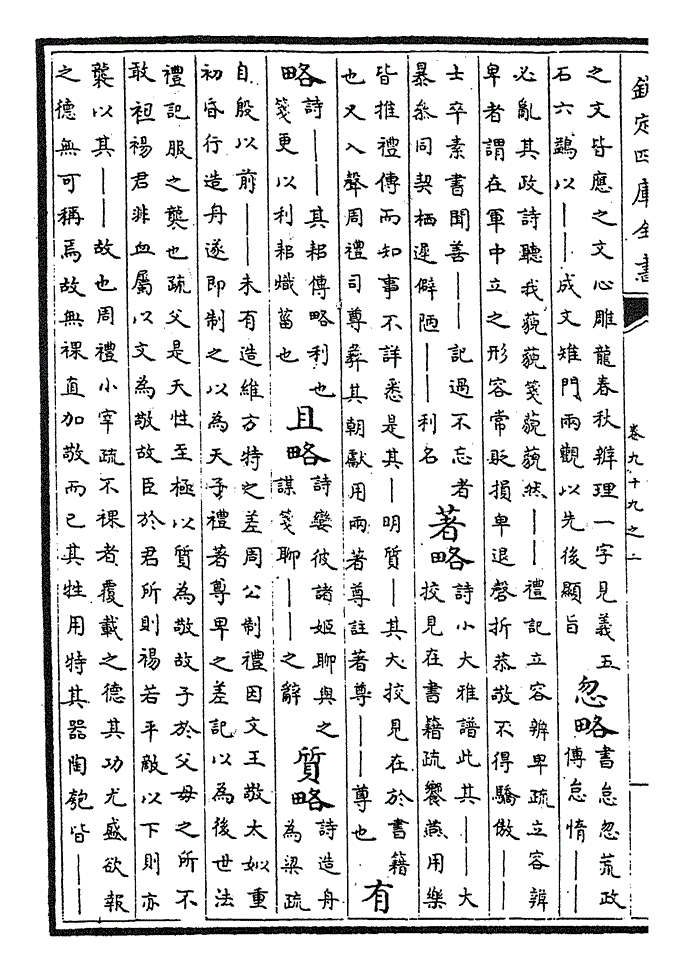 欽定四庫全書
卷九十九之二
之文皆應之文心雕龍春秋辨理一字見義五
石六鷁以——成文雉門兩觀以先後顯旨
忽略
書怠忽荒政
傳怠惰——
必亂其政詩聽我藐藐箋藐藐然——禮記立容辨卑疏立容辨
卑者謂在軍中立之形容常貶損卑退磬折恭敬不得驕傲——
士卒素書聞善——記過不忘者
暴叅同契栖遲僻陋——利名
著略
詩小大雅譜此其——大
挍見在書籍疏饗燕用樂
皆推禮傳而知事不詳悉是其—明質—其大挍見在於書籍
也又入聲周禮司尊彝其朝獻用兩著尊註著尊——尊也
有
略
詩——其耜傳略利也
箋更以利耜熾菑也
且略
詩孌彼諸姬聊與之
謀箋聊——之辭
質略
詩造舟
為梁疏
自殷以前——未有造維方特之差周公制禮因文王敬大姒重
初昏行造舟遂即制之以為天子禮著尊卑之差記以為後世法
禮記服之襲也疏父是天性至極以質為敬故子於父母之所不
敢袒裼君非血屬以文為敬故臣於君所則裼若平敵以下則亦
襲以其——故也周禮小宰疏不祼者覆載之德其功尤盛欲報
之德無可稱焉故無祼直加敬而已其牲用特其器陶匏皆——